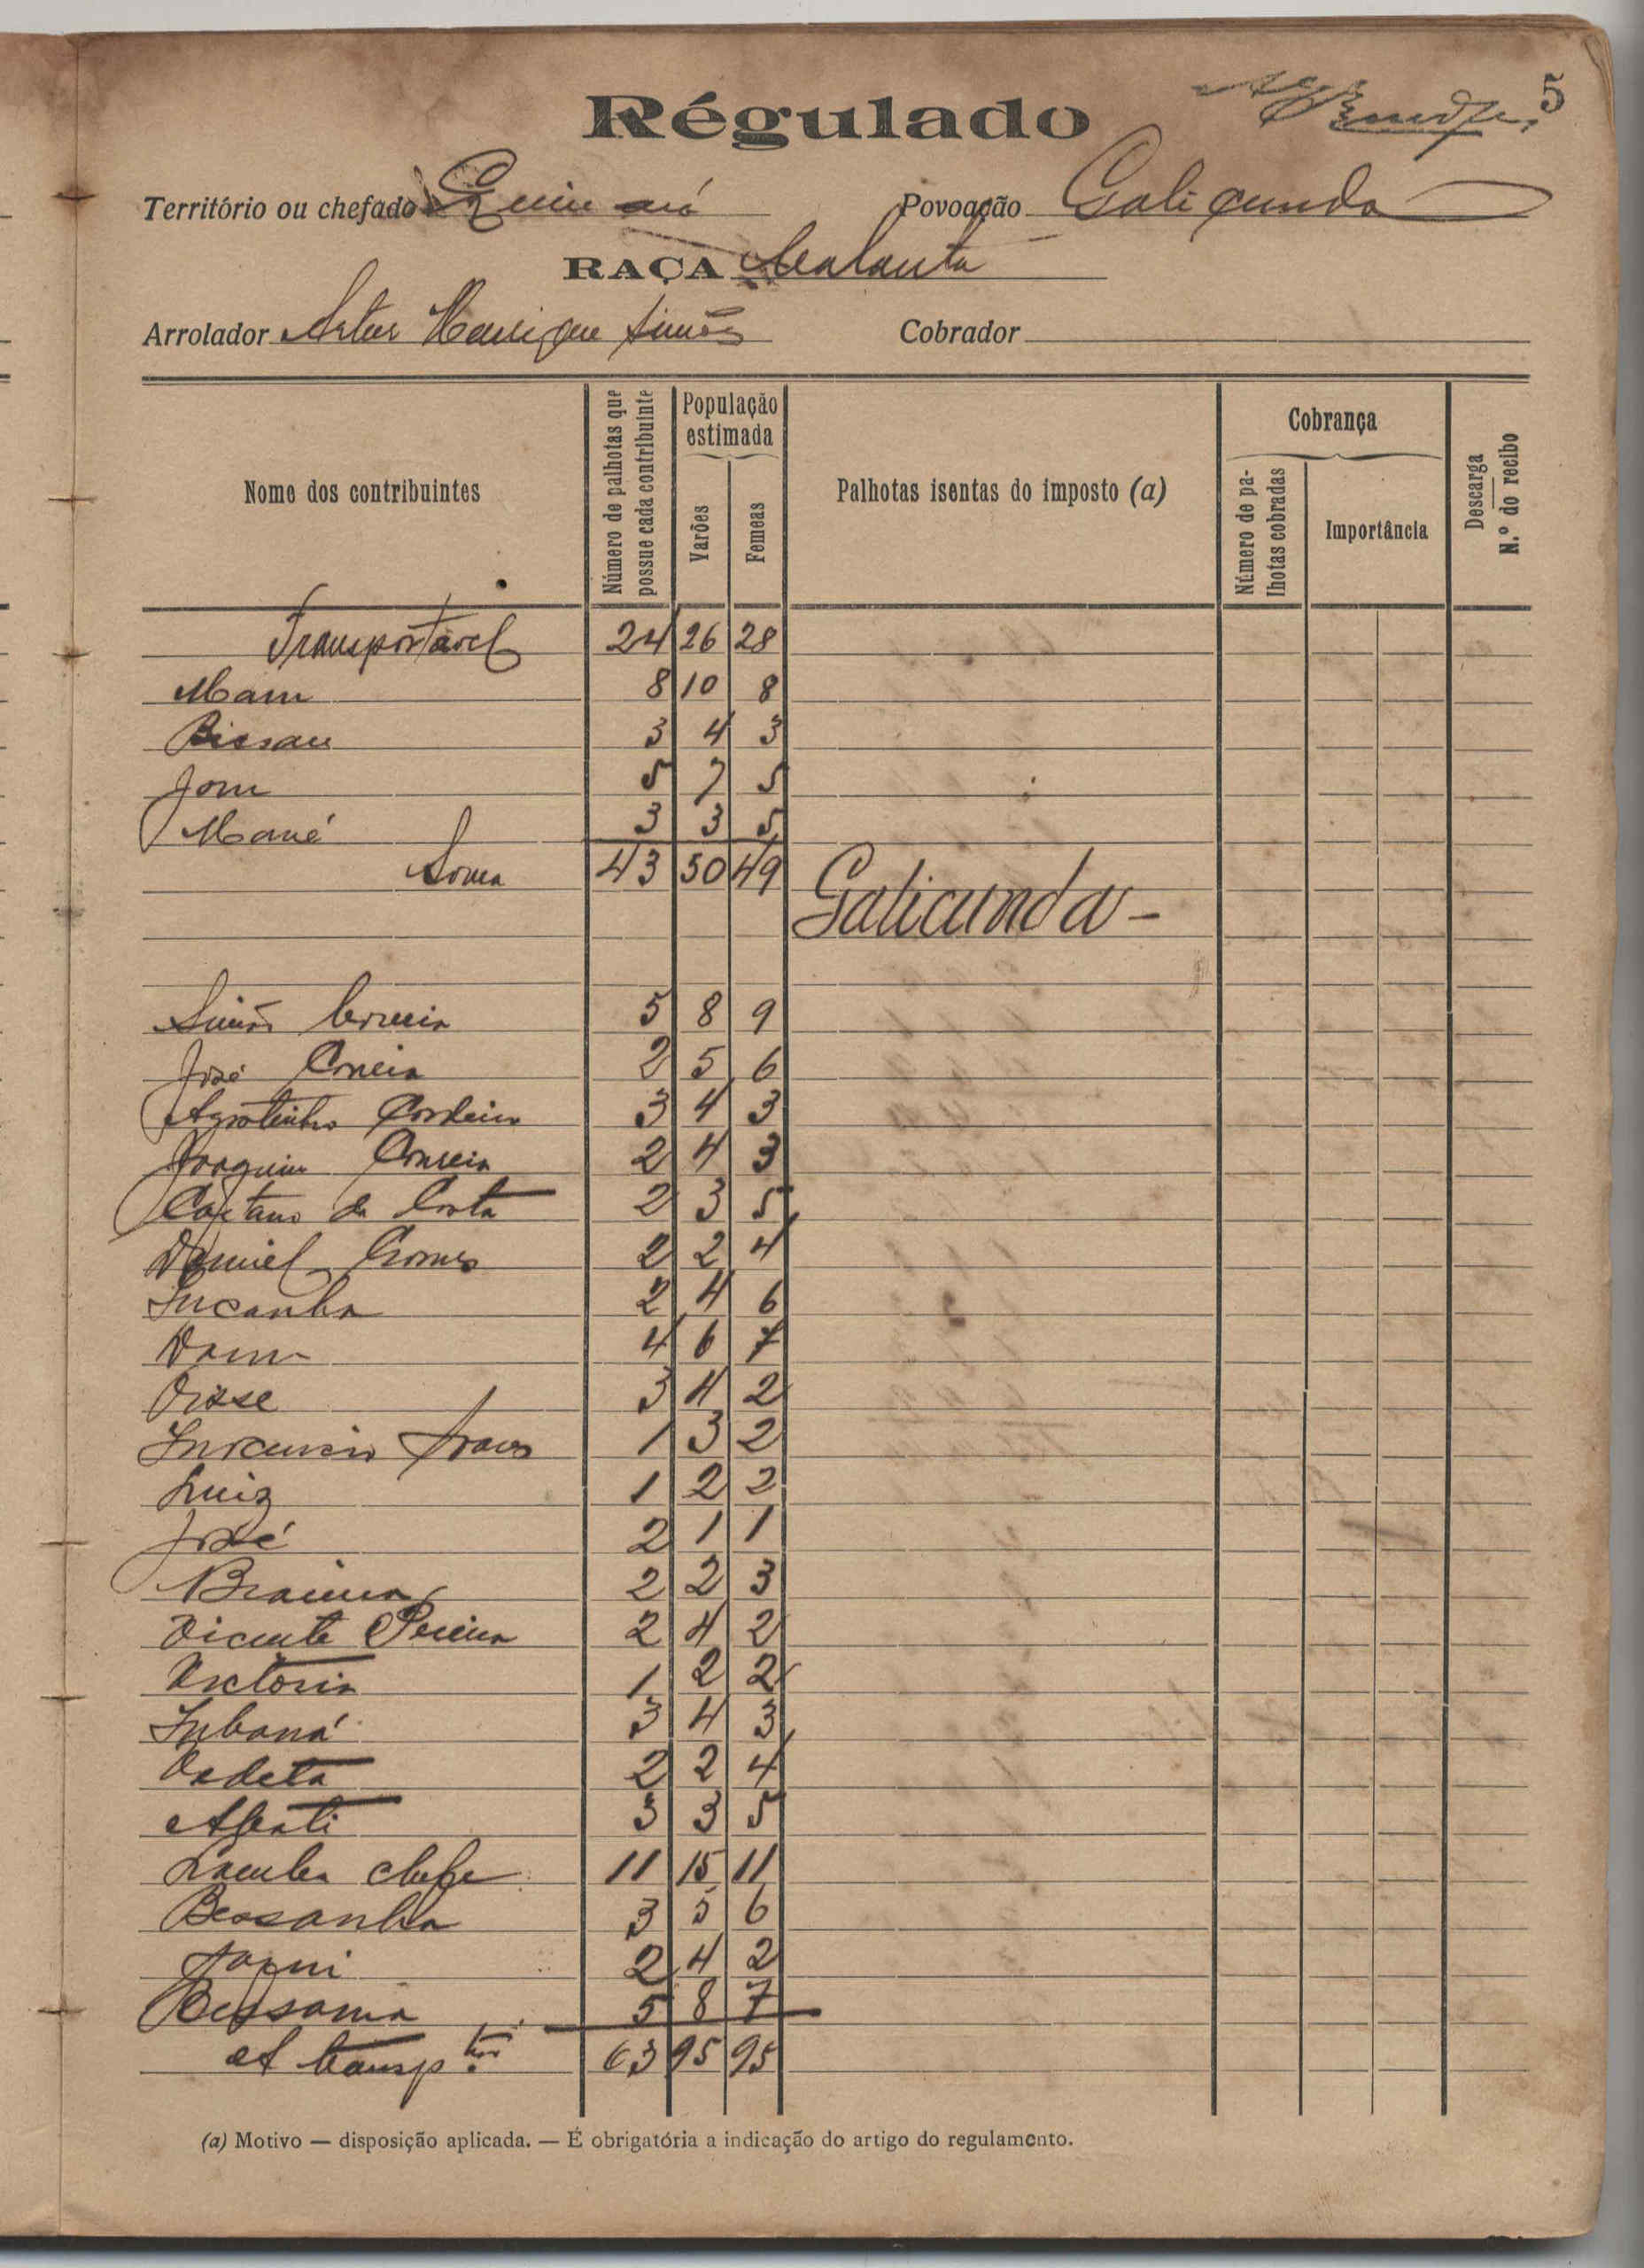 5
Régulado
Território ou chefado Povoação Galicunda
RAÇA Balanta
Arrolador Artur Henrique Simões Cobrador
Nome dos contribuintes
Número de palhotas que possue cada contribuinte
População estimada
Varões
Femeas
Palhotas isentas do imposto (a)
Cobrança
Número de palhotas cobradas
Importância
Descarga
N.º do recibo
24 26 28
8 10 8
Bissau 3 4 3
Jom 5 7 5
Mané 3 3 5
Soma 43 50 49
Galicunda -
Simão Correia 5 8 9
José Correia 2 5 6
Agostinho Cordeiro 3 4 3
Joaquim Correia 2 4 3
Caetano da Costa 2 3 5
Daniel Gomes 2 2 4
Incanha 2 4 6
4 6 7
3 4 2
1 3 2
Luiz 1 2 2
José 2 1 1
Braima 2 2 3
Vicente Pereira 2 4 2
Victoria 1 2 2
3 4 3
2 2 4
3 3 5
chefe 11 15 11
Bessanha 3 5 6
2 4 2
5 8 7
A transp. 63 95 95
(a) Motivo — disposição aplicada. — É obrigatória a indicação do artigo do regulamento.